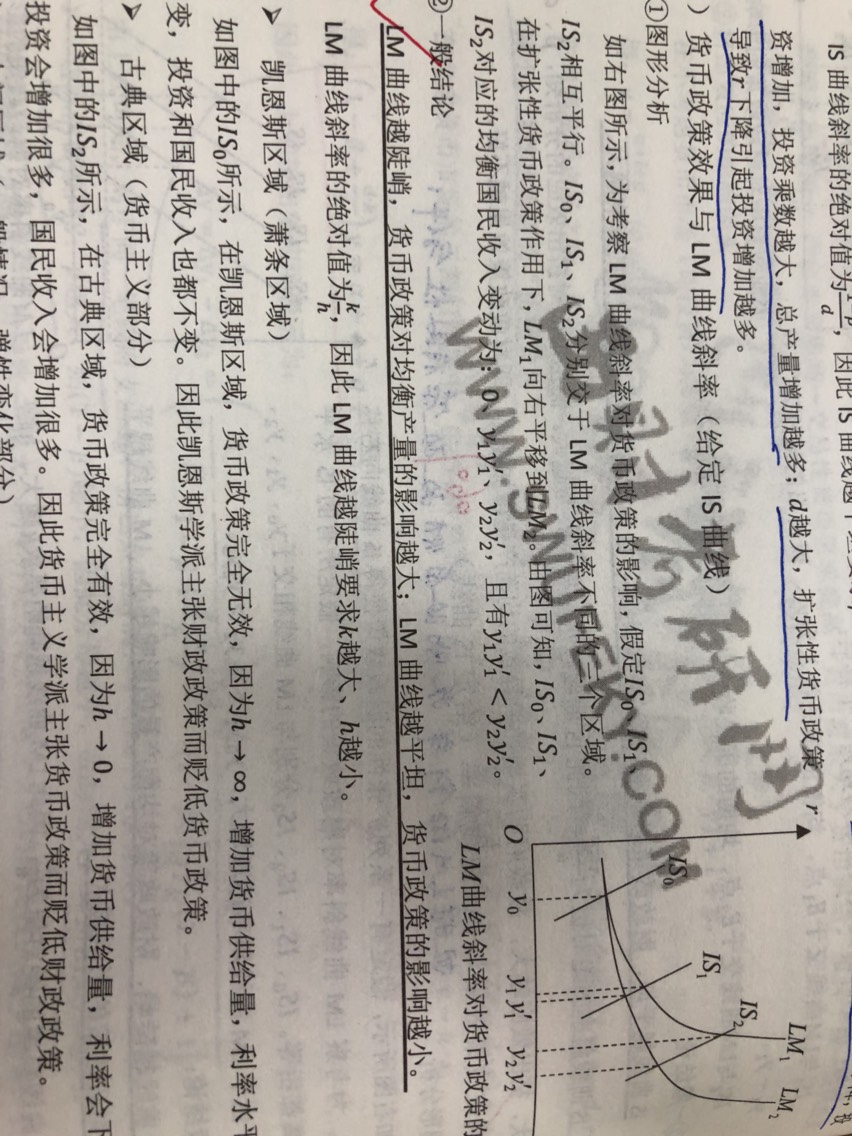 IS 曲线斜率的绝对值为
，因此 IS 曲线越
资增加，投资乘数越大，总产量增加越多；d越大，扩张性货币政策
导致r下降引起投资增加越多。
）货币政策效果与 LM 曲线斜率（给定 IS 曲线）
①图形分析
如右图所示，为考察 LM 曲线斜率对货币政策的影响，假定IS₀、IS₁、
IS₂相互平行。IS₀、IS₁、IS₂分别交于 LM 曲线斜率不同的三个区域。
在扩张性货币政策作用下，LM₁向右平移到LM₂。由图可知，IS₀、IS₁、
IS₂对应的均衡国民收入变动为：0、y₁y₁′、y₂y₂′，且有y₁y₁′ < y₂y₂′。
r
LM₁
LM₂
IS₀
IS₁
IS₂
O
y₀
y₁ y₁′
y₂ y₂′
LM曲线斜率对货币政策的
②一般结论
LM 曲线越陡峭，货币政策对均衡产量的影响越大；LM 曲线越平坦，货币政策的影响越小。
LM 曲线斜率的绝对值为k/h，因此 LM 曲线越陡峭要求k越大、h越小。
➤ 凯恩斯区域（萧条区域）
如图中的IS₀所示，在凯恩斯区域，货币政策完全无效，因为h → ∞，增加货币供给量，利率水平
变，投资和国民收入也都不变。因此凯恩斯学派主张财政政策而贬低货币政策。
➤ 古典区域（货币主义部分）
如图中的IS₂所示，在古典区域，货币政策完全有效，因为h → 0，增加货币供给量，利率会下
投资会增加很多，国民收入会增加很多。因此货币主义学派主张货币政策而贬低财政政策。
般情况，弹性变化部分）
考研网